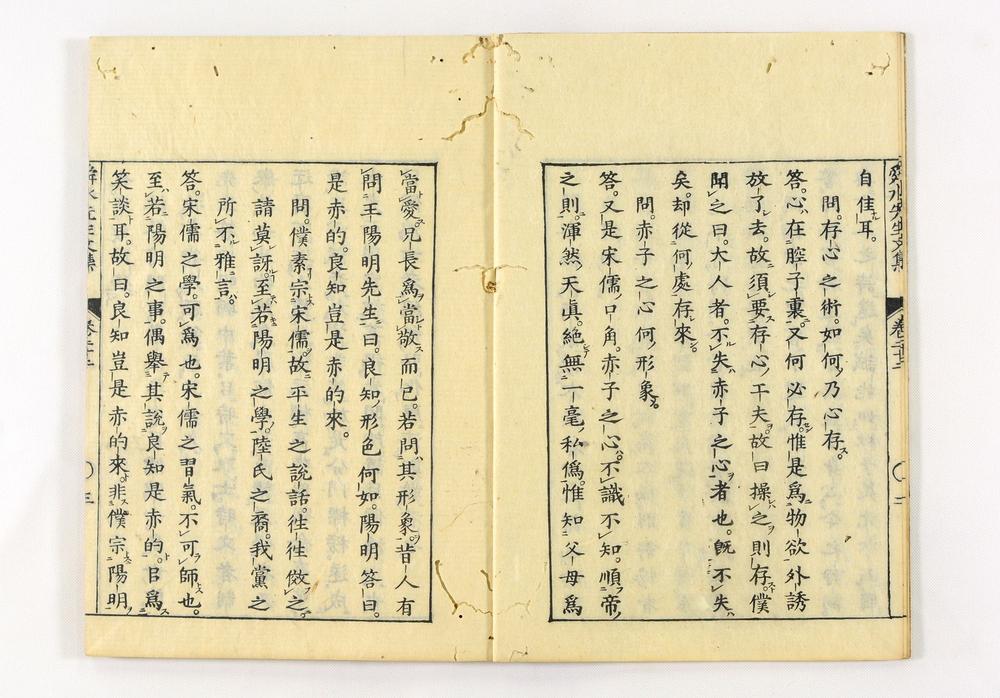 舜水先生文集 卷之二十二 ○ 二
自佳耳。
問。存心之術。如何乃心存。
答。心在腔子裏。又何必存。惟是爲物欲外誘
放了去。故須要存心工夫。故曰操之則存。僕
聞之曰。大人者。不失赤子之心者也。既不失
矣。却從何處存來。
問。赤子之心何形象。
答。又是宋儒口角。赤子之心。不識不知。順帝
之則。渾然天眞。絶無一毫私僞。惟知父母爲
當愛。兄長爲當敬而已。若問其形象。昔人有
問王陽明先生曰。良知形色何如。陽明答曰。
是赤的。良知豈是赤的來。
問。僕素宗宋儒。故平生之說話。徃徃傚之。
請莫訝。至若陽明之學。陸氏之裔。我黨之
所不雅言。
答。宋儒之學。可爲也。宋儒之習氣。不可師也。
至若陽明之事。偶舉其說良知是赤的。㠯爲
笑談耳。故曰。良知豈是赤的來。非僕宗陽明
舜水先生文集 卷之二十二 ○ 三